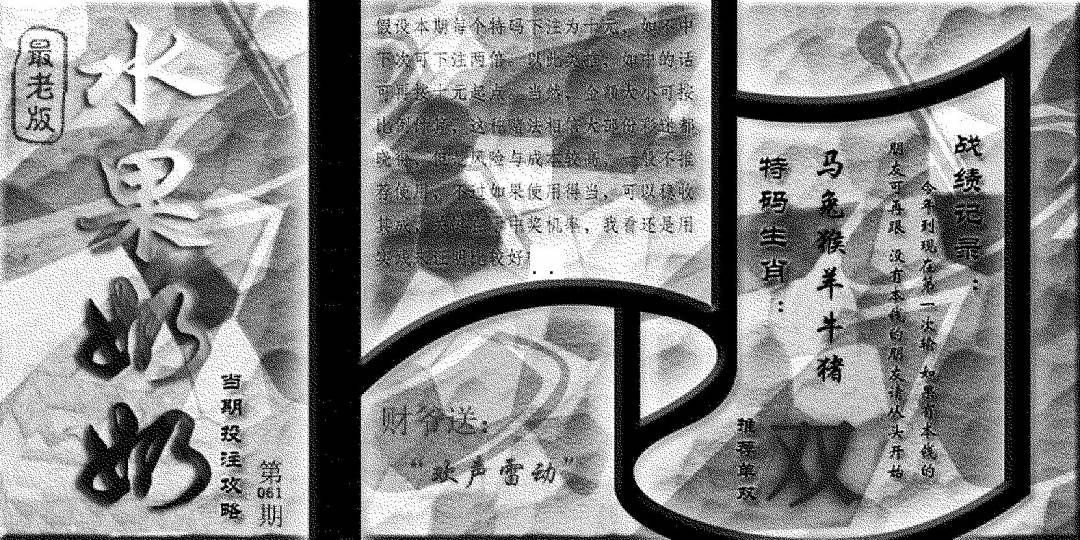 最老版
水果奶奶
当期投注攻略
第
061
期
假设本期每个特码下注为十元，如不中
下次可下注两倍，以此类推，如中的话
可再按十元起点，当然，金额大小可按
比例
这种赌法相信大部份彩迷都
风险与成本较高，一般不推
荐使用，不过如果使用得当，可以稳收
其成，
中奖机率，我看还是用
比较好
财爷送：
“欢声雷动”
战绩记录：
今年到现在第一次输 如果有本钱的
朋友可再跟 没有本钱的朋友请从头开始
马兔猴羊牛猪
特码生肖：
推荐单双
双